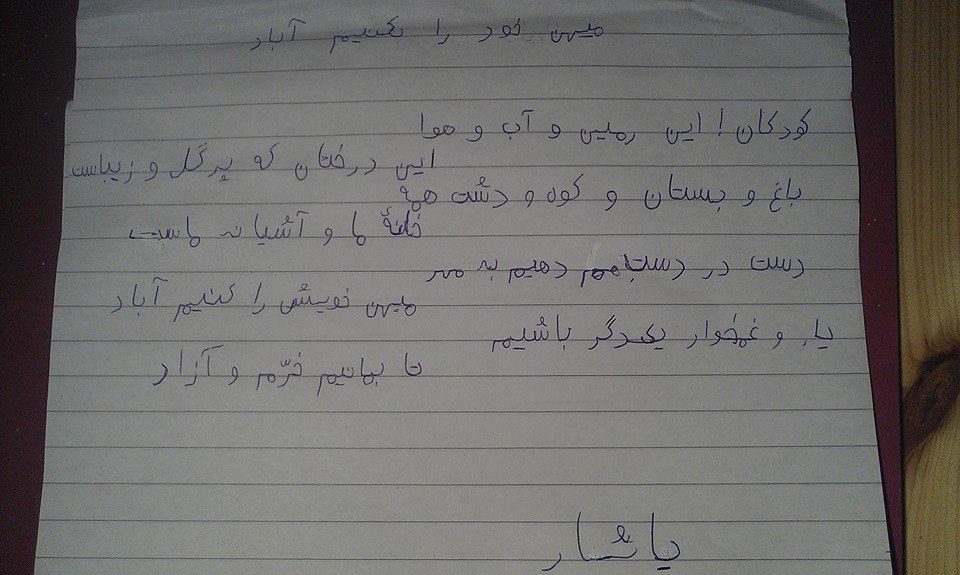 میهن خود را بکنیم آباد
کودکان! این زمین و آب و هوا
این درختان که پر گل و زیباست
باغ و بستان و کوه و دشت همه
خانهٔ ما و آشیانه ماست
دست در دست هم دهیم به مهر
میهن خویش را کنیم آباد
یار و غمخوار یکدگر باشیم
تا بمانیم خرّم و آزاد
یاشار